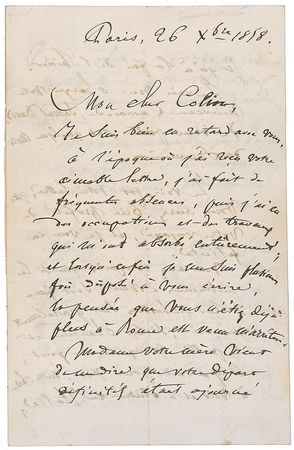 Paris, 26 Xbre 1858.
Mon cher Colin,
Je suis bien en retard avec vous,
à l'époque où j'ai reçu votre
aimable lettre, j'ai fait de
fréquentes absences, puis j'ai eu
des occupations et du travail
qui m'ont absorbé entièrement,
et lorsqu'enfin je me suis plusieurs
fois disposé à vous écrire
la pensée que vous n'étiez déjà
plus à Rome est venu m'arrêter.
Madame votre mère vient
de me dire que votre départ
définitif était ajourné